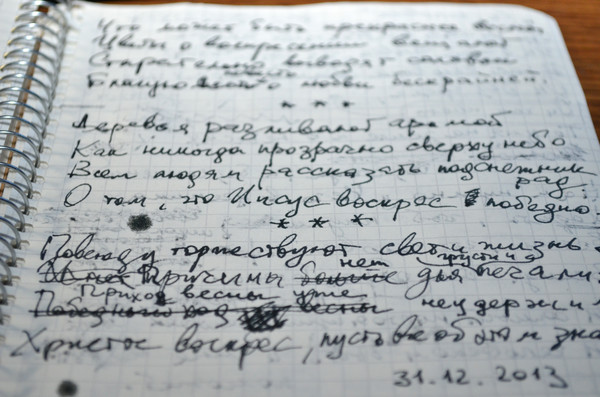 Что может быть прекраснее весны,
Цветы о воскресении вещают
Старательно выводят соловьи
о любви бескрайней.
* * *
Деревья разливают аромат
Как никогда прозрачно сверху небо
Всем людям рассказать подснежник рад
О том, что Иисус воскрес победно.
* * *
Повсюду торжествуют свет и жизнь
причины нет для грусти и печали
Приход весны уже неудержи
Христос воскрес, пусть все об этом зна
31.12.2013